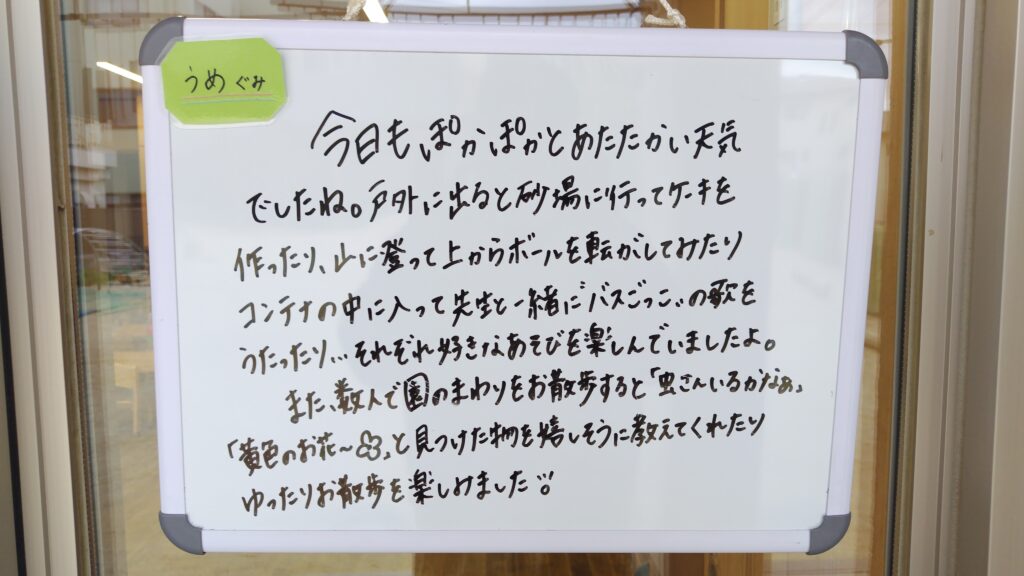 うめぐみ
今日もぽかぽかとあたたかい天気
でしたね。戸外に出ると砂場に行ってケーキを
作ったり、山に登って上からボールを転がしてみたり
コンテナの中に入って先生と一緒に"バスごっこ"の歌を
うたったり...それぞれ好きなあそびを楽しんでいましたよ。
また、数人で園のまわりをお散歩すると「虫さんいるかなぁ」
「黄色のお花~」と見つけた物を嬉しそうに教えてくれたり
ゆったりお散歩を楽しみました!!